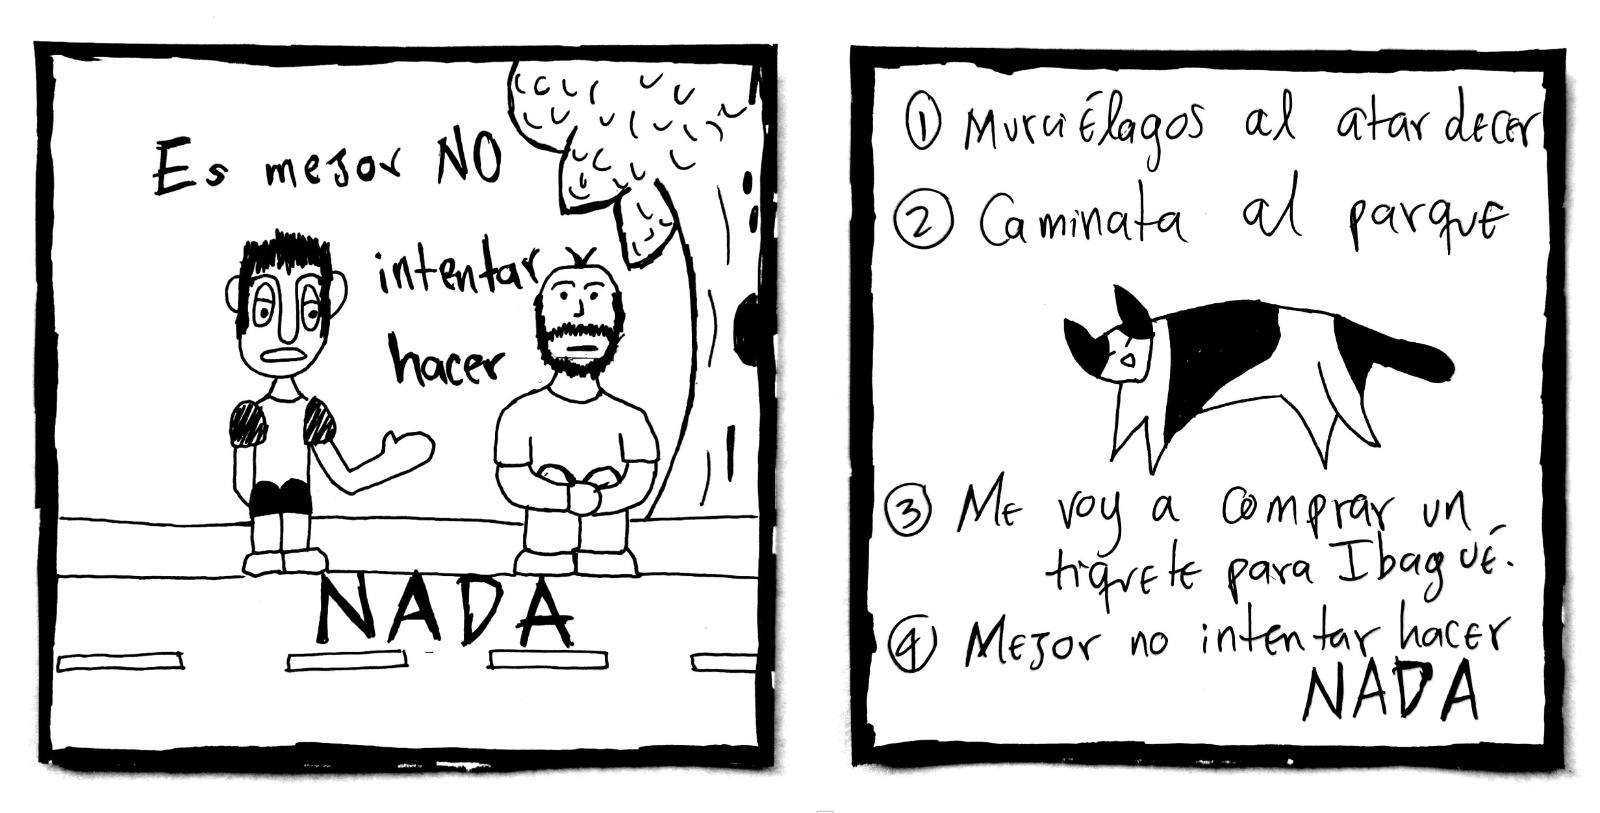 Es mejor NO
intentar
hacer
NADA
① Murciélagos al atardecer
② Caminata al parque
③ Me voy a comprar un
tiquete para Ibagué.
④ Mejor no intentar hacer
NADA